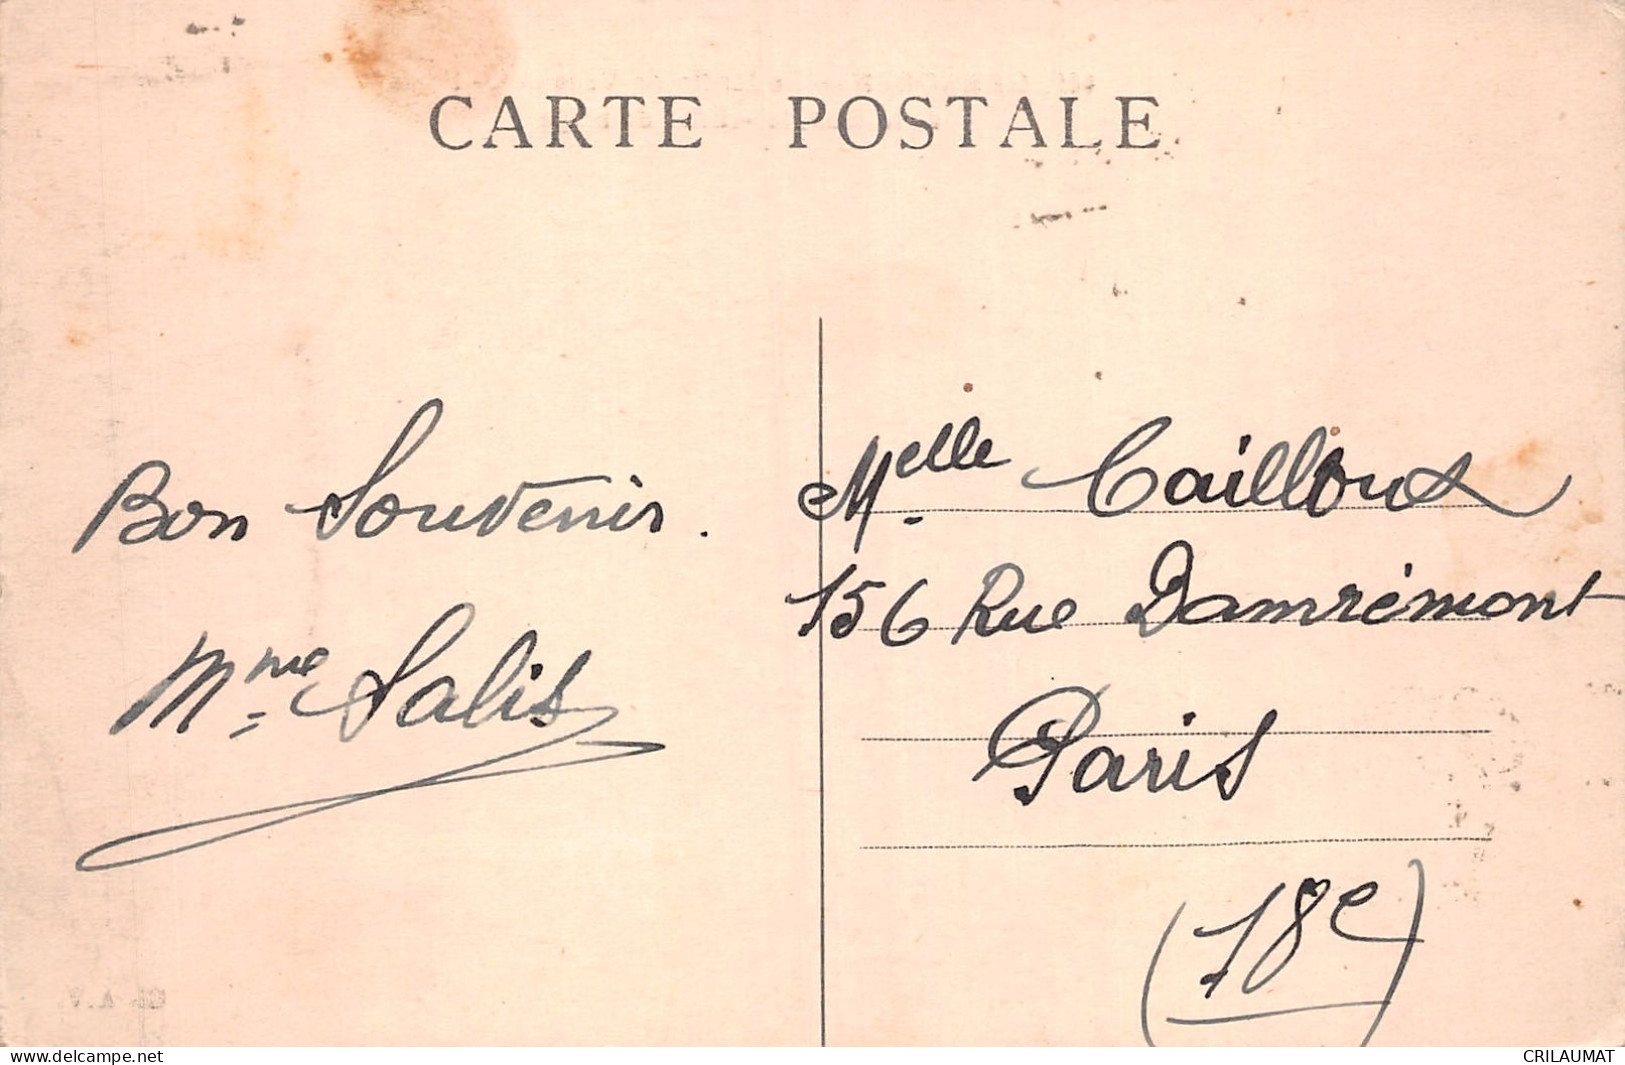 CARTE POSTALE
Bon Souvenir.
Mme Salis
Melle Cailloux
156 Rue Damrémont
Paris
(18e)
www.delcampe.net
CRILAUMAT